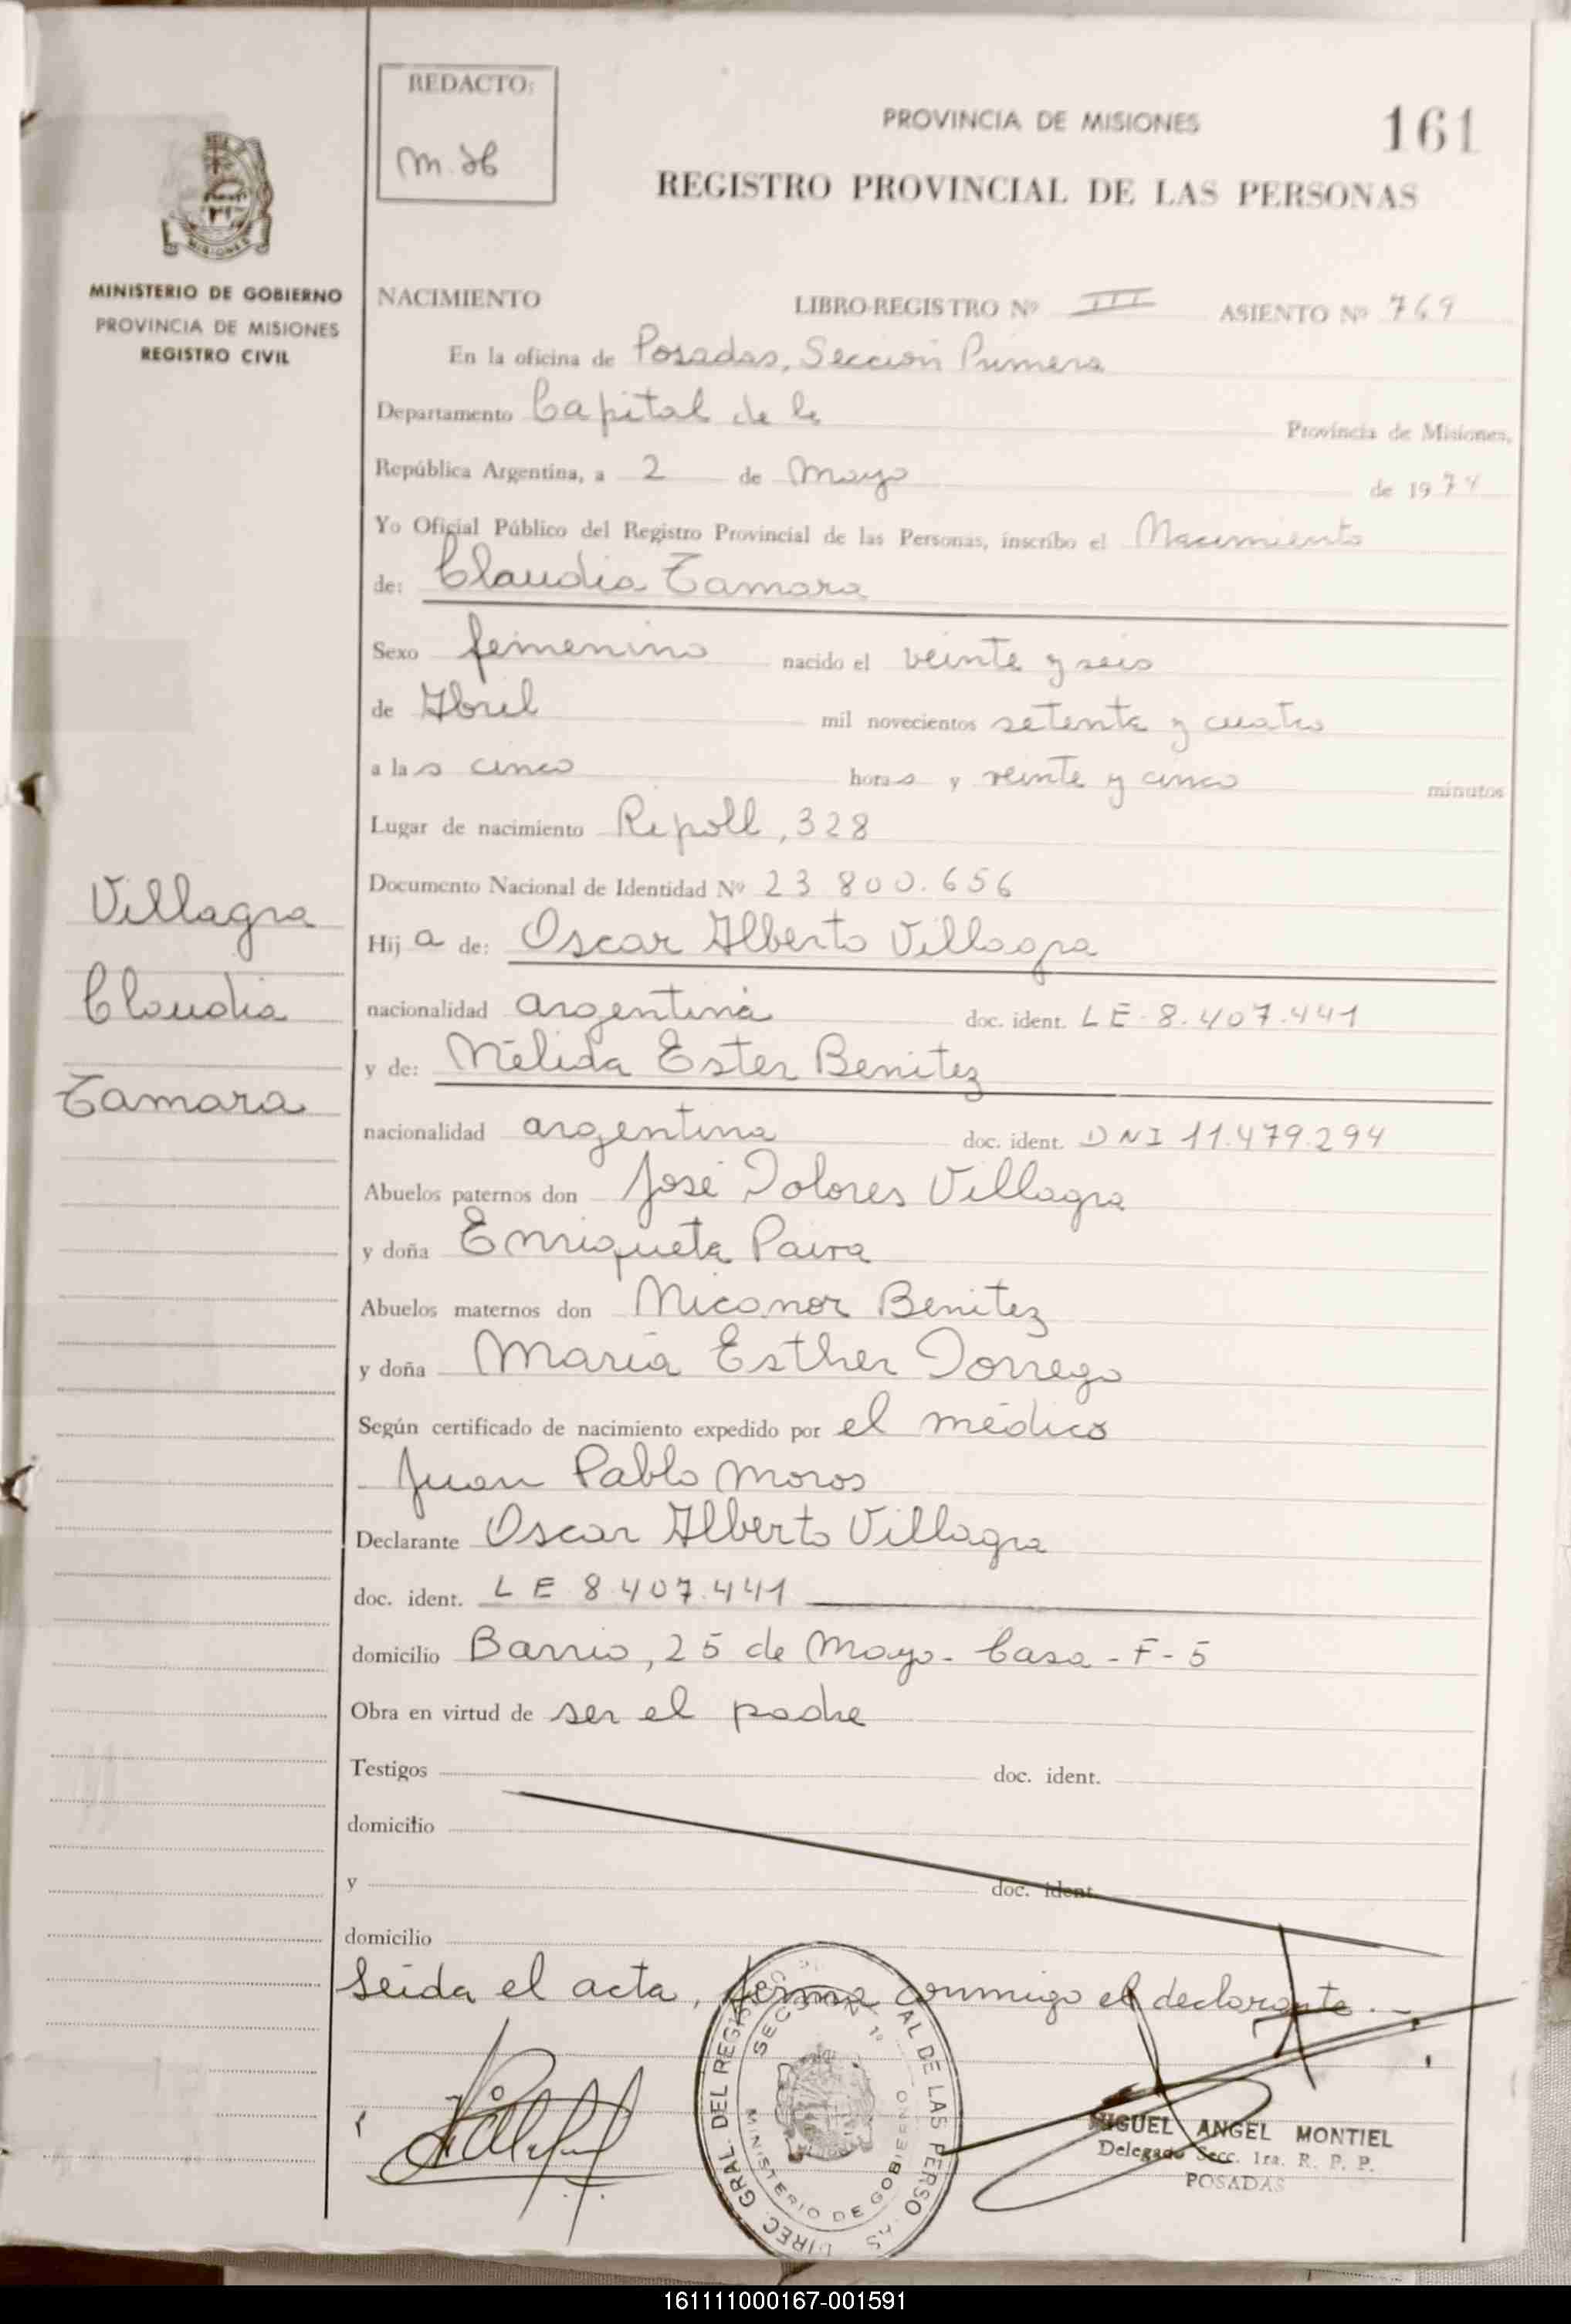 REDACTO:
PROVINCIA DE MISIONES
161
REGISTRO PROVINCIAL DE LAS PERSONAS
MISIONES
MINISTERIO DE GOBIERNO
PROVINCIA DE MISIONES
REGISTRO CIVIL
NACIMIENTO LIBRO-REGISTRO Nº III ASIENTO Nº 769
En la oficina de Posadas, Sección Primera
Departamento Capital de la Provincia de Misiones,
República Argentina, a 2 de Mayo de 1974
Yo Oficial Público del Registro Provincial de las Personas, inscribo el Nacimiento
de: Claudia Tamara
Sexo femenino nacido el veinte y seis
de Abril mil novecientos setenta y cuatro
a las cinco horas y veinte y cinco minutos
Lugar de nacimiento Ripoll, 328
Documento Nacional de Identidad Nº 23 800.656
Villagra
Claudia
Tamara
Hija de: Oscar Alberto Villagra
nacionalidad argentina doc. ident. LE 8.407.441
y de: Nélida Ester Benitez
nacionalidad argentina doc. ident. DNI 11.479.294
Abuelos paternos don José Dolores Villagra
y doña Enriqueta Paiva
Abuelos maternos don Nicanor Benitez
y doña María Esther Dorrego
Según certificado de nacimiento expedido por el médico
Juan Pablo Moros
Declarante Oscar Alberto Villagra
doc. ident. LE 8.407.441
domicilio Barrio, 25 de Mayo - Casa - F - 5
Obra en virtud de ser el padre
Testigos doc. ident.
domicilio
y doc. ident.
domicilio
Leida el acta, firma conmigo el declarante.-
DIREC. GRAL. DEL REGIS AL DE LAS PERSO AS
SECCION 1º
MINISTERIO DE GOBIERNO
MIGUEL ANGEL MONTIEL
Delegado Secc. 1ra. R. P. P.
POSADAS
161111000167-001591